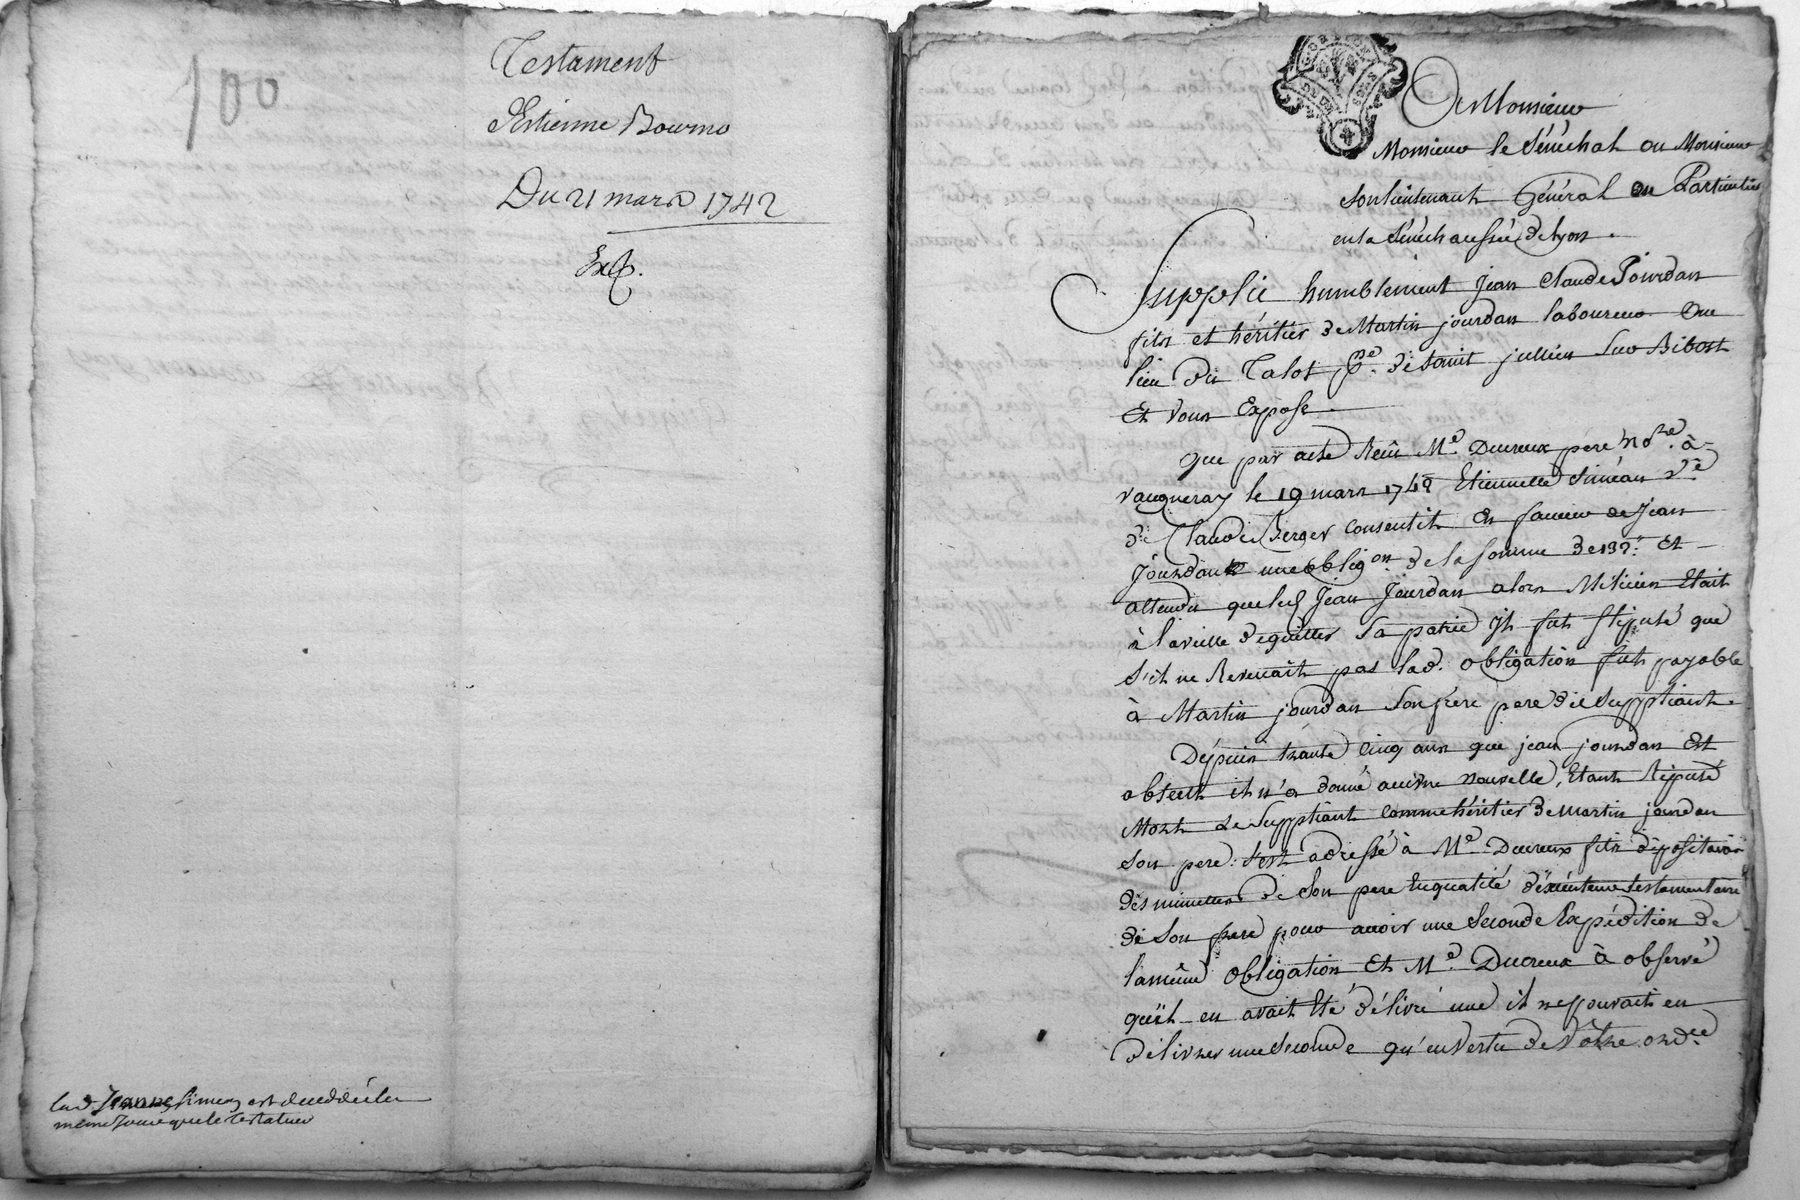 100
Testament
d'Estienne Bourno
Du 21 mars 1742
Exp.
lad. Jeanne Simean est decedée le
meme jour que le testateur
A Monsieur
Monsieur le Sénéchal ou Monsieur
son lieutenant Général ou Particulier
en la Sénéchaussée de Lyon.
Supplie humblement Jean Claude Jourdan
fils et héritier de Martin jourdan laboureur au
lieu du Talot p.sse de Saint jullien sur Bibost
Et vous Expose
que par acte Reçu Me. Ducreux pere nore. à
vaugneray le 19 mars 1748 Etiennette Siméan ve
de Claude Berger consentit en faveur de Jean
Jourdan une obligon. de la somme de 132.l Et
attendu que led Jean Jourdan alors Milicien Etait
à la veille de quitter Sa patrie Il fut stipulé que
s'il ne Revenait pas lad. obligation fut payable
à Martin jourdan Son frere pere du Suppliant.
Dépuis trante cinq ans que jean jourdan Est
absent il n'a donné aucune nouvelle, Etant Réputé
Mort Le Suppliant comme héritier de Martin jourdan
son pere s'est adressé à Me. Ducreux fils dépositaire
des minuttes de Son pere En qualité d'éxécuteur testamentaire
de Son pere pour avoir une Seconde Expédition de
la même obligation Et Me. Ducreux à observé
qu'il en avait Eté délivré une il ne pouvait en
délivrer une Seconde qu'en Vertu de Vôtre ordce.